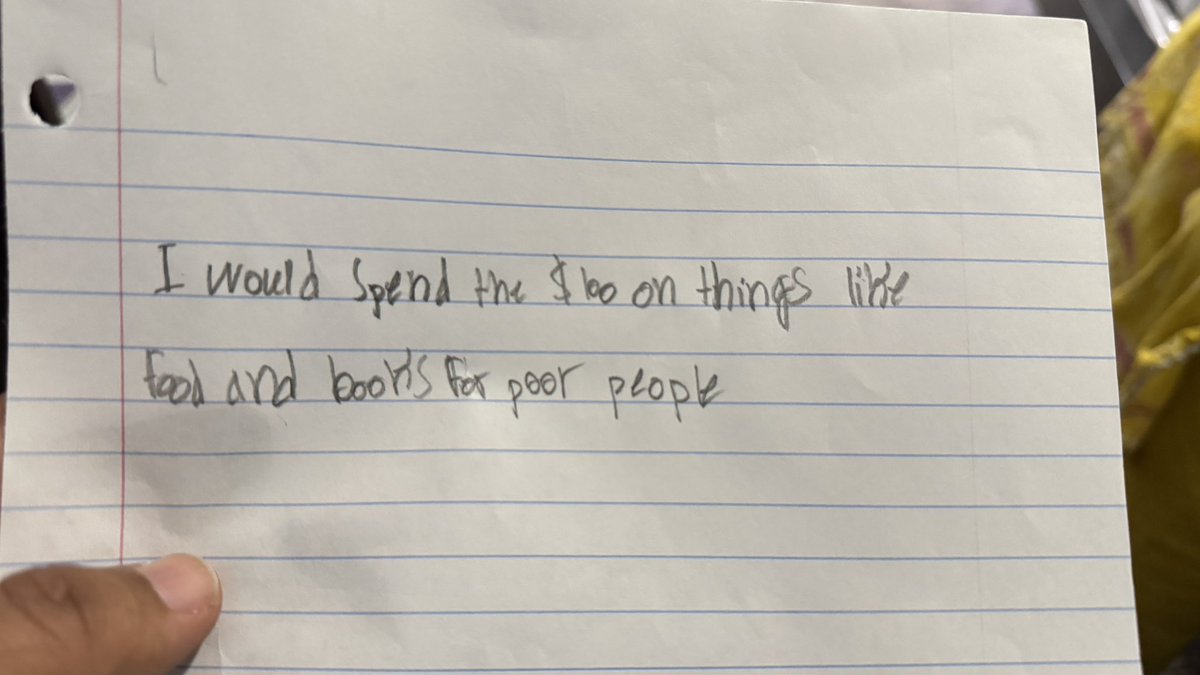 I would spend the $100 on things like
food and books for poor people